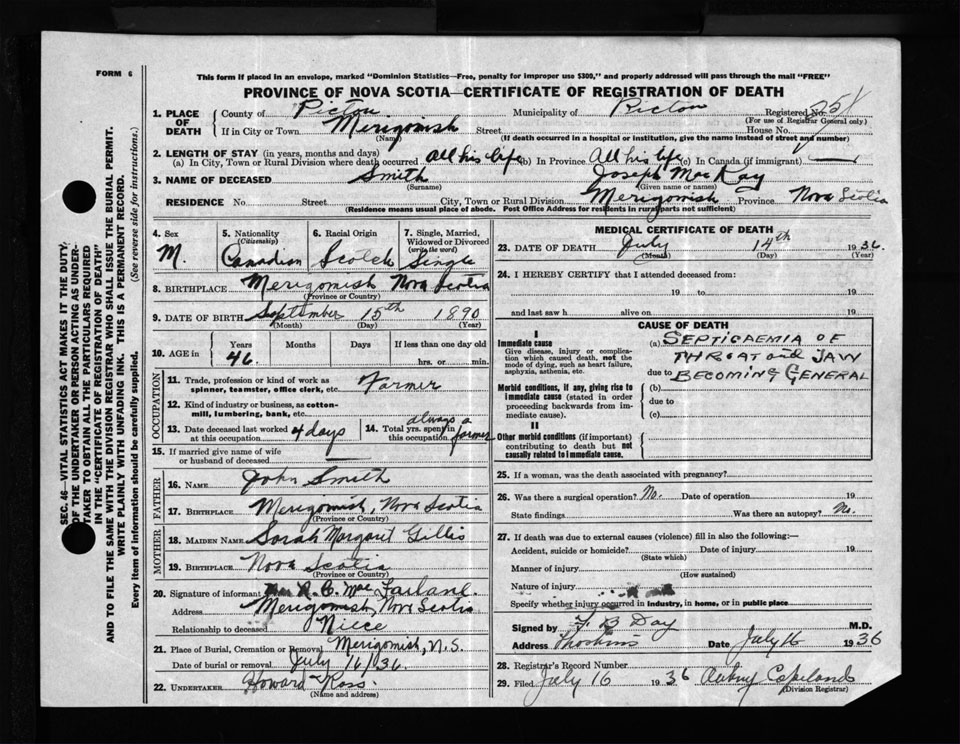 FORM 6
This form if placed in an envelope, marked "Dominion Statistics—Free, penalty for improper use $300," and properly addressed will pass through the mail "FREE"
PROVINCE OF NOVA SCOTIA—CERTIFICATE OF REGISTRATION OF DEATH
1. PLACE OF DEATH
County of Pictou Municipality of Pictou Registered No. 251
(For use of Registrar General only)
If in City or Town Merigomish Street House No.
(Name) (If death occurred in a hospital or institution, give the name instead of street and number)
2. LENGTH OF STAY (in years, months and days)
(a) In City, Town or Rural Division where death occurred All his life (b) In Province All his life (c) In Canada (if immigrant)
3. NAME OF DECEASED Smith Joseph MacKay
(Surname) (Given name or names)
RESIDENCE No. Street City, Town or Rural Division Merigomish Province Nova Scotia
(Residence means usual place of abode. Post Office Address for residents in rural parts not sufficient)
4. Sex M.
5. Nationality (Citizenship) Canadian
6. Racial Origin Scotch
7. Single, Married, Widowed or Divorced (write the word) Single
8. BIRTHPLACE Merigomish Nova Scotia
(Province or Country)
9. DATE OF BIRTH September 15th 1890
(Month) (Day) (Year)
10. AGE in Years 46. Months Days If less than one day old
hrs. or min.
OCCUPATION
11. Trade, profession or kind of work as spinner, teamster, office clerk, etc. Farmer
12. Kind of industry or business, as cotton-mill, lumbering, bank, etc.
13. Date deceased last worked at this occupation 4 days
14. Total yrs. spent in this occupation always a farmer
15. If married give name of wife or husband of deceased
FATHER
16. NAME John Smith
17. BIRTHPLACE Merigomish, Nova Scotia
(Province or Country)
MOTHER
18. MAIDEN NAME Sarah Margaret Gillis
19. BIRTHPLACE Nova Scotia
(Province or Country)
20. Signature of informant R. C. MacFarland.
Address Merigomish, Nova Scotia
Relationship to deceased Niece
21. Place of Burial, Cremation or Removal Merigomish, N.S.
Date of burial or removal July 16/36.
22. UNDERTAKER Howard Ross.
(Name and address)
MEDICAL CERTIFICATE OF DEATH
23. DATE OF DEATH July 14th 1936.
(Month) (Day) (Year)
24. I HEREBY CERTIFY that I attended deceased from:
19 to 19
and last saw h alive on 19
CAUSE OF DEATH
I
Immediate cause
Give disease, injury or complication which caused death, not the mode of dying, such as heart failure, asphyxia, asthenia, etc.
(a) SEPTICAEMIA OF
THROAT and JAW
due to BECOMING GENERAL
Morbid conditions, if any, giving rise to immediate cause (stated in order proceeding backwards from immediate cause).
(b)
due to
(c)
II
Other morbid conditions (if important) contributing to death but not causally related to immediate cause.
25. If a woman, was the death associated with pregnancy?
26. Was there a surgical operation? No. Date of operation 19
State findings Was there an autopsy? No.
27. If death was due to external causes (violence) fill in also the following:—
Accident, suicide or homicide? Date of injury 19
(State which)
Manner of injury
(How sustained)
Nature of injury
Specify whether injury occurred in industry, in home, or in public place
Signed by F B Day M.D.
Address Thorburn Date July 16 1936
28. Registrar's Record Number
29. Filed July 16 1936 Copeland
(Division Registrar)
SEC. 46—VITAL STATISTICS ACT MAKES IT THE DUTY
OF THE UNDERTAKER OR PERSON ACTING AS UNDER-
TAKER TO OBTAIN ALL THE PARTICULARS REQUIRED
IN THE "CERTIFICATE OF REGISTRATION OF DEATH"
AND TO FILE THE SAME WITH THE DIVISION REGISTRAR WHO SHALL ISSUE THE BURIAL PERMIT.
WRITE PLAINLY WITH UNFADING INK. THIS IS A PERMANENT RECORD.
Every item of information should be carefully supplied. (See reverse side for instructions.)